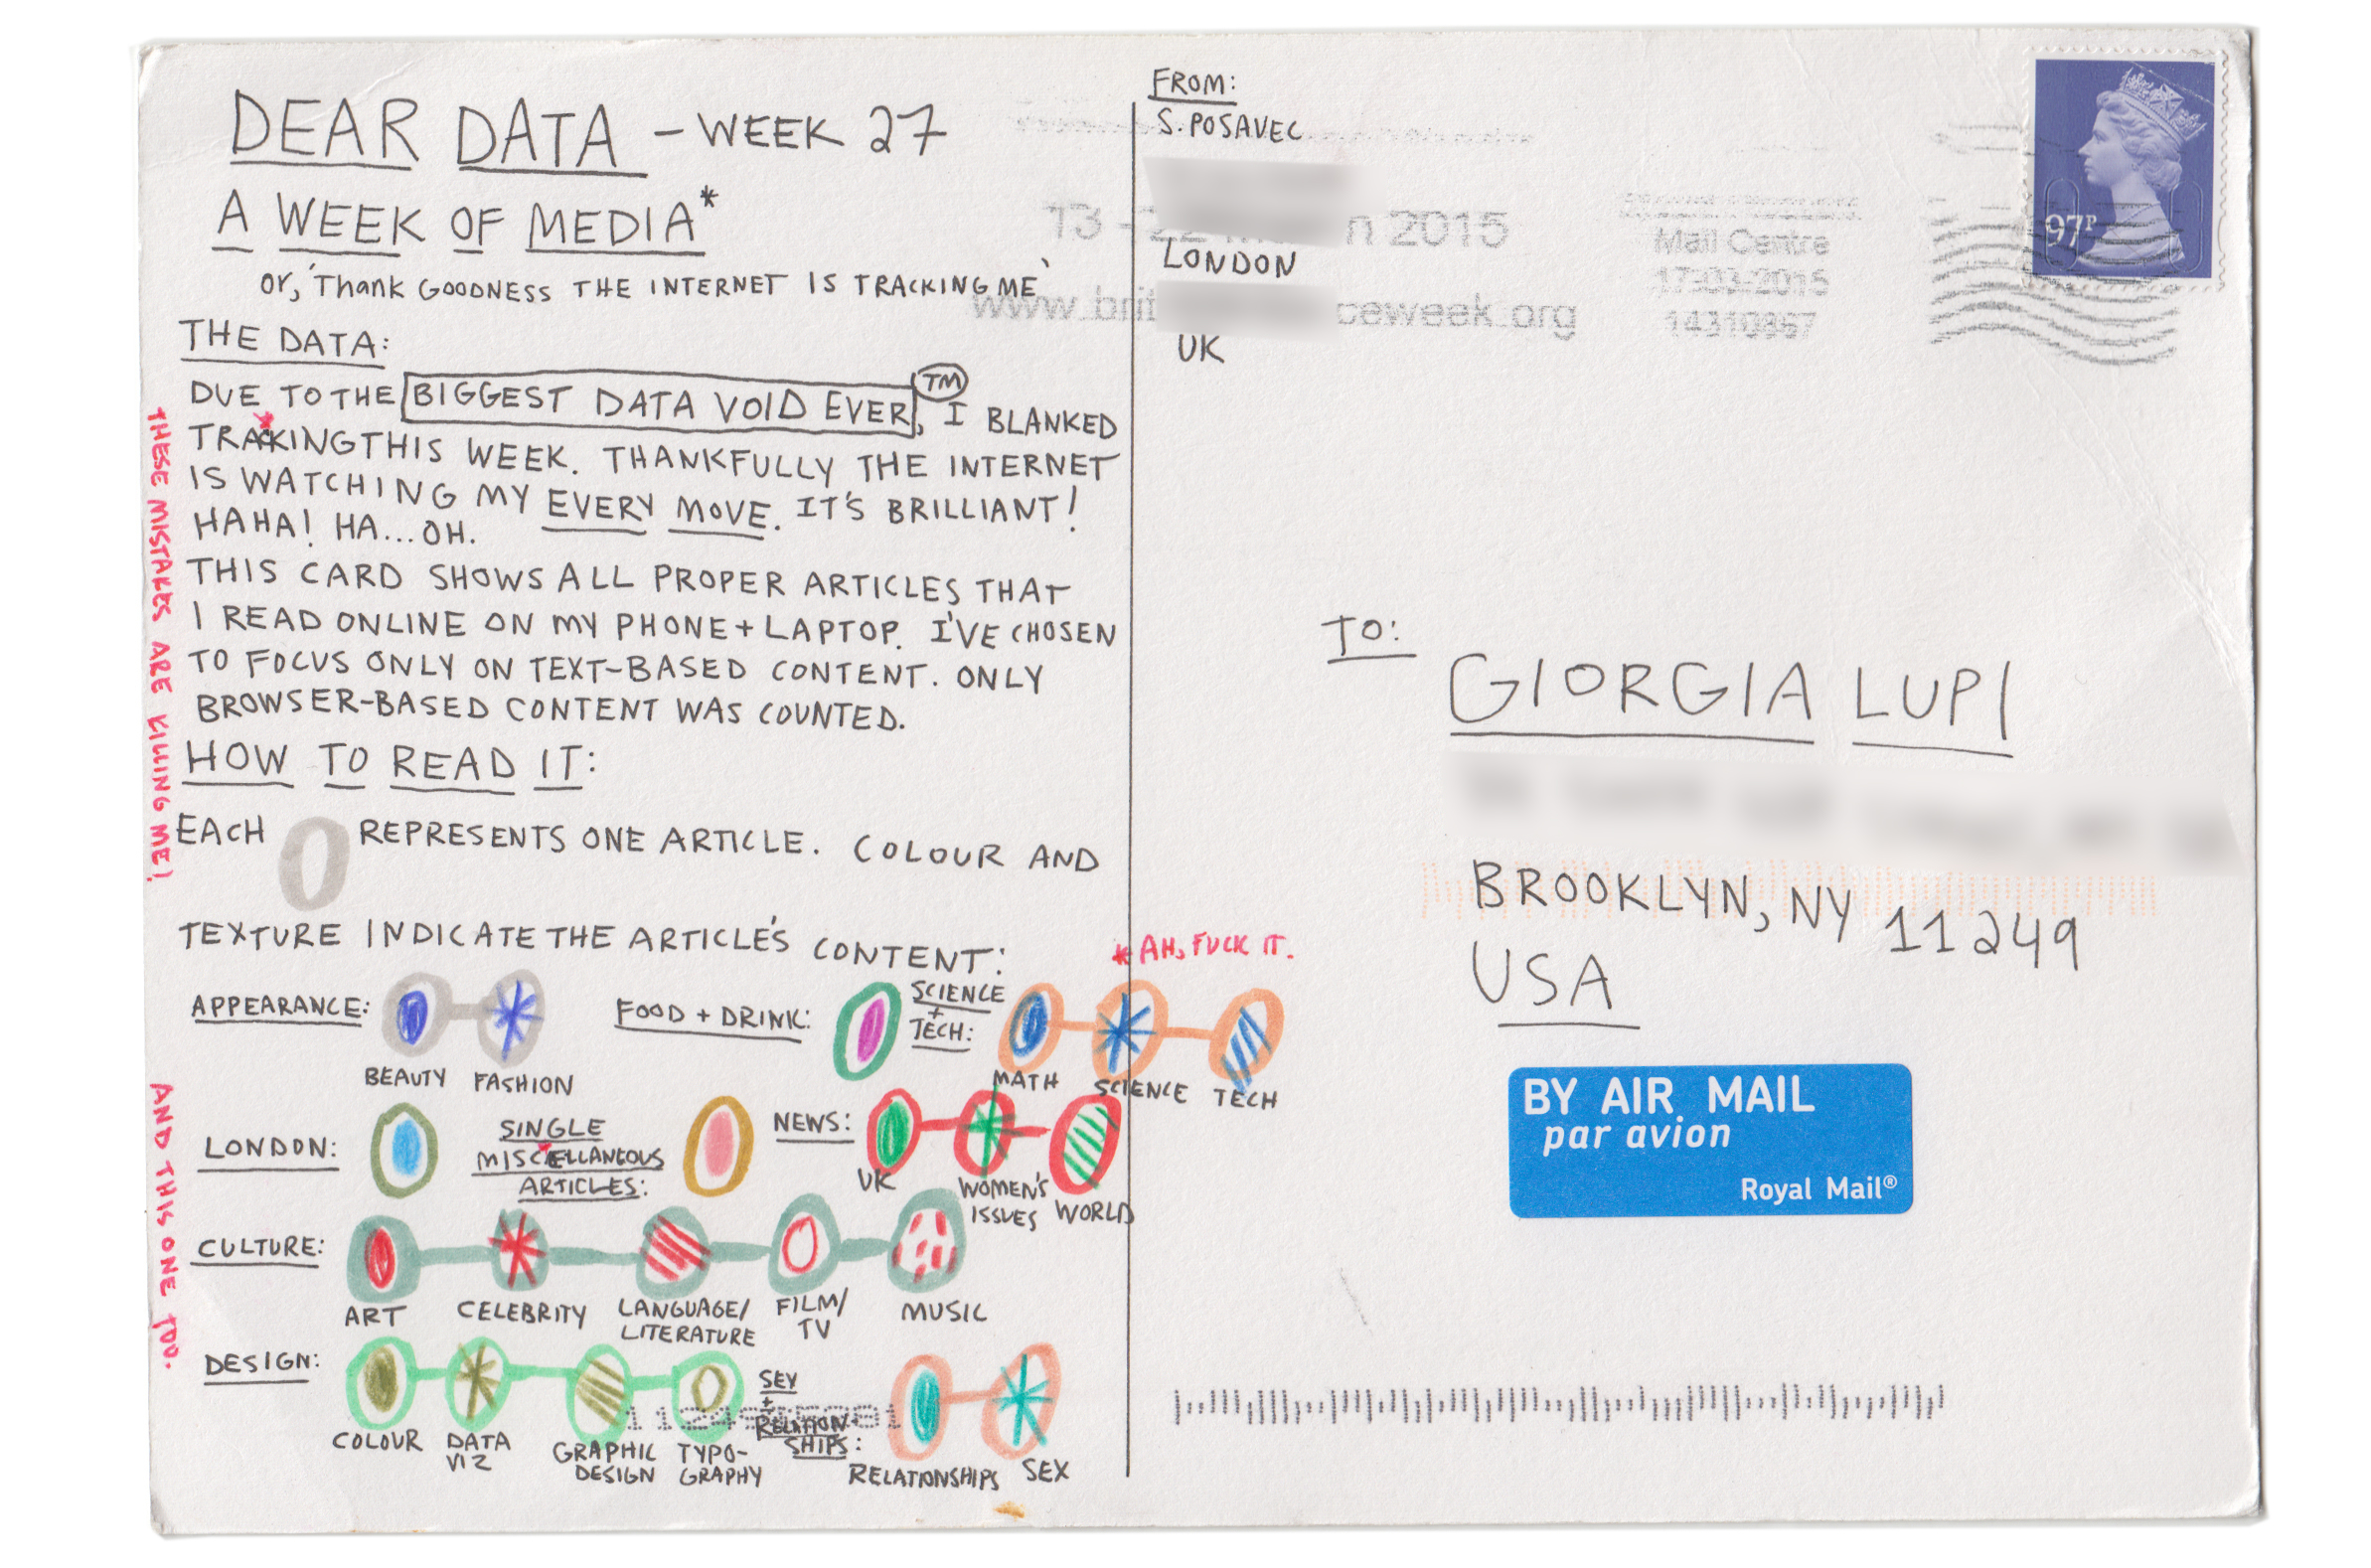 DEAR DATA - WEEK 27
A WEEK OF MEDIA*
or, 'Thank GOODNESS THE INTERNET IS TRACKING ME'
THE DATA:
DUE TO THE BIGGEST DATA VOID EVER, TM I BLANKED
TRACKING THIS WEEK. THANKFULLY THE INTERNET
IS WATCHING MY EVERY MOVE. IT'S BRILLIANT!
HAHA! HA... OH.
THIS CARD SHOWS ALL PROPER ARTICLES THAT
I READ ONLINE ON MY PHONE + LAPTOP. I'VE CHOSEN
TO FOCUS ONLY ON TEXT-BASED CONTENT. ONLY
BROWSER-BASED CONTENT WAS COUNTED.
HOW TO READ IT:
EACH REPRESENTS ONE ARTICLE. COLOUR AND
TEXTURE INDICATE THE ARTICLE'S CONTENT:
* AH, FUCK IT.
APPEARANCE:
BEAUTY FASHION
FOOD + DRINK:
SCIENCE
+
TECH:
MATH SCIENCE TECH
LONDON:
SINGLE
MISCELLANEOUS
ARTICLES:
NEWS:
UK
WOMEN'S
ISSUES
WORLD
CULTURE:
ART
CELEBRITY
LANGUAGE/
LITERATURE
FILM/
TV
MUSIC
DESIGN:
COLOUR
DATA
VIZ
GRAPHIC
DESIGN
TYPO-
GRAPHY
SEX
+
RELATION-
SHIPS:
RELATIONSHIPS SEX
THESE MISTAKES ARE KILLING ME!
AND THIS ONE TOO.
FROM:
S. POSAVEC
LONDON
UK
13 - 2015
Mail Centre
17-03-2015
97P
TO:
GIORGIA LUPI
BROOKLYN, NY 11249
USA
BY AIR MAIL
par avion
Royal Mail®